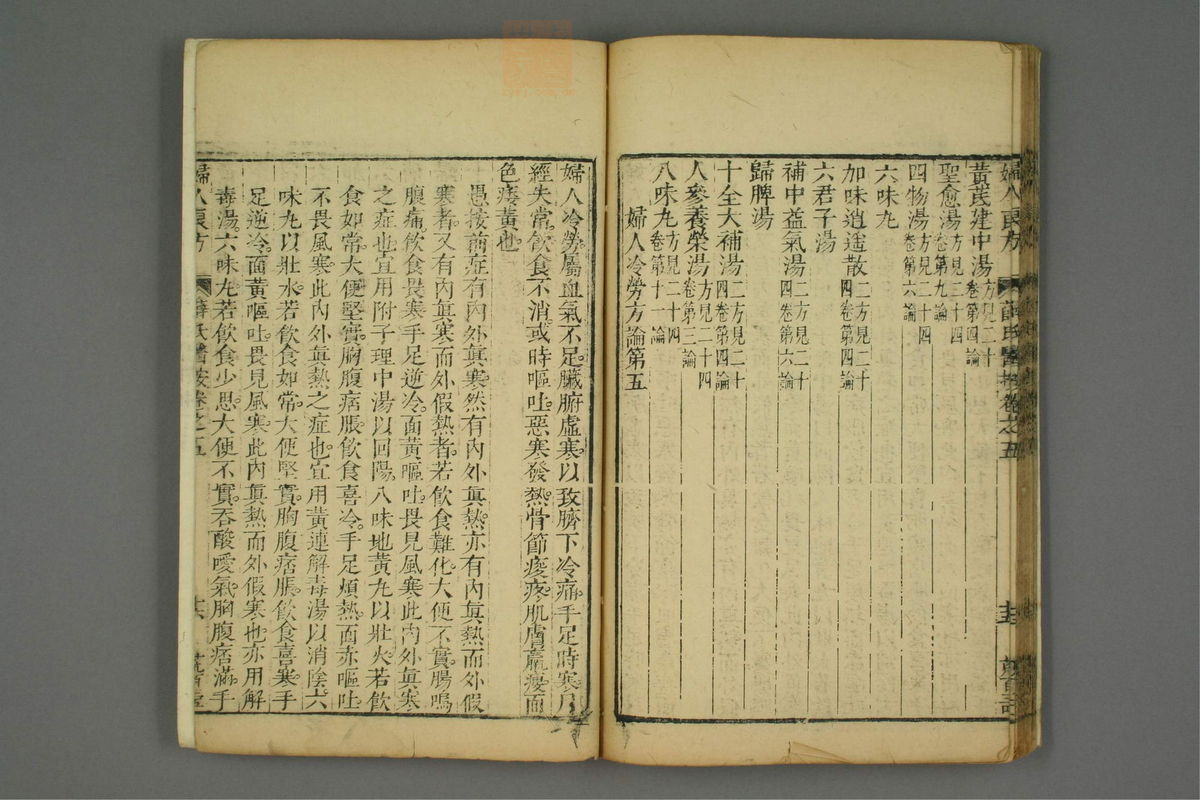 婦人良方 薛氏醫按卷之五
黃芪建中湯方見二十卷第四論
聖愈湯方見二十四卷第九論
四物湯方見二十四卷第六論
六味丸
加味逍遙散二方見二十四卷第四論
六君子湯
補中益氣湯二方見二十四卷第六論
歸脾湯
十全大補湯二方見二十四卷第四論
人參養榮湯方見二十四卷第三論
八味丸方見二十四卷第十一論
婦人冷勞方論第五
婦人冷勞屬血氣不足臟腑虛寒以致臍下冷痛手足時寒月
經失常飲食不消或時嘔吐惡寒發熱骨節痠疼肌膚羸瘦面
色痿黃也
愚按前症有內外眞寒然有內外眞熱亦有內眞熱而外假
寒者又有內眞寒而外假熱者若飲食難化大便不實腸鳴
腹痛飲食畏寒手足逆冷面黃嘔吐畏見風寒此內外眞寒
之症也宜用附子理中湯以回陽八味地黃丸以壯火若飲
食如常大便堅實胸腹痞脹飲食喜冷手足煩熱面赤嘔吐
不畏風寒此內外眞熱之症也宜用黃連解毒湯以消陰六
味丸以壯水若飲食如常大便堅實胸腹痞脹飲食喜寒手
足逆冷面黃嘔吐畏見風寒此內眞熱而外假寒也亦用解
毒湯六味丸若飲食少思大便不實吞酸噯氣胸腹痞滿手
婦人良方 薛氏醫按卷之五 十六